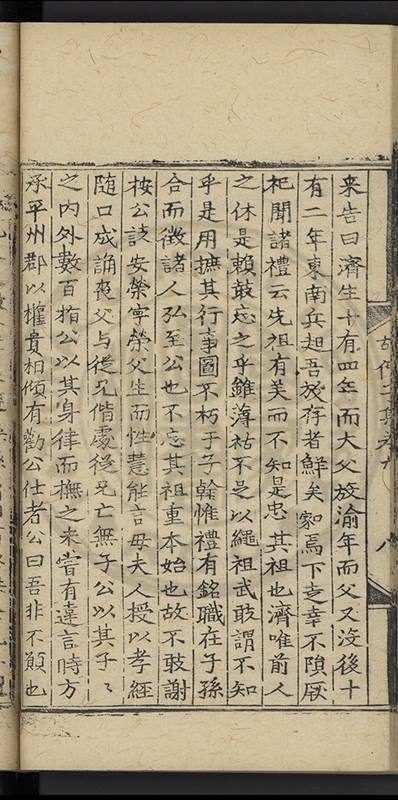 来告曰濟生十有四年而大父放渝年而父又沒後十
有二年東南兵起吾族存者鮮矣家焉下走幸不隕厥
祀聞諸禮云先祖有美而不知是忠其祖也濟唯前人
之休是賴敢忘之乎雖薄祜不足以繩祖武敢謂不知
乎是用摭其行事圖不朽于子幹惟禮有銘職在子孫
合而徵諸人弘至公也不忘其祖重本始也故不敢謝
按公諱安榮字榮父生而性慧能言母夫人授以孝經
随口成誦喪父与從兄偕處從兄亡無子公以其子〻
之内外數百指公以其身律而撫之未嘗有違言時方
承平州郡以權貴相傾有勸公仕者公曰吾非不願也
胡仲子集卷九
八